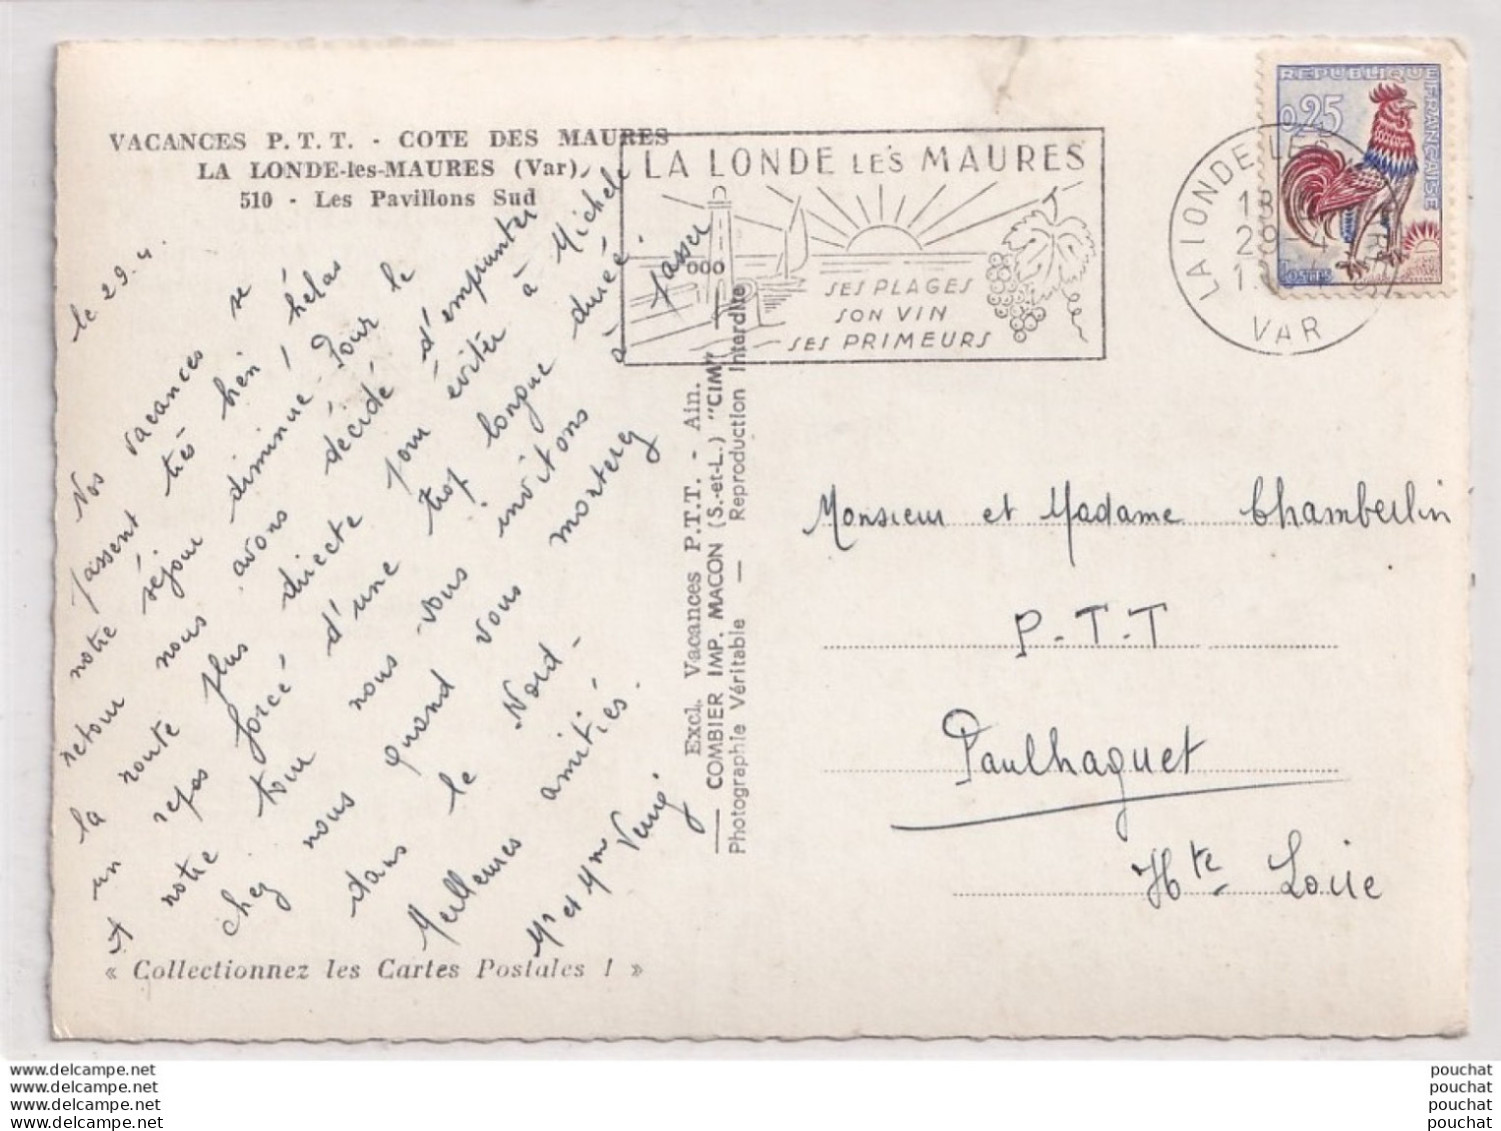 VACANCES P.T.T. - COTE DES MAURES
LA LONDE-les-MAURES (Var)
510 - Les Pavillons Sud
le 29.4
Nos vacances se
passent très bien, hélas
notre séjour diminue. Pour le
retour nous avons décidé d'emprunter
la route plus directe pour éviter à Michele
un repas forcé d'une trop longue durée.
et notre tour nous vous invitons à passer
chez nous quand vous monterez
dans le Nord.
Meilleures amitiés.
Mr et Mme
« Collectionnez les Cartes Postales ! »
Excl. Vacances P.T.T. - Ain.
COMBIER IMP. MACON (S.-et-L.) "CIM"
Photographie Véritable — Reproduction Interdite
LA LONDE LES MAURES
SES PLAGES
SON VIN
SES PRIMEURS
LA LONDE LES
VAR
REPUBLIQUE FRANÇAISE
0,25
POSTES
Monsieur et Madame Chamberlin
P.T.T
Paulhaguet
Hte Loire
www.delcampe.net
www.delcampe.net
www.delcampe.net
www.delcampe.net
pouchat
pouchat
pouchat
pouchat